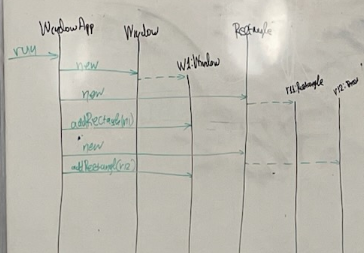 WindowApp Window Rectangle
run
new
W1:Window
new
r1:Rectangle
addRectangle(r1)
new
addRectangle(r2)